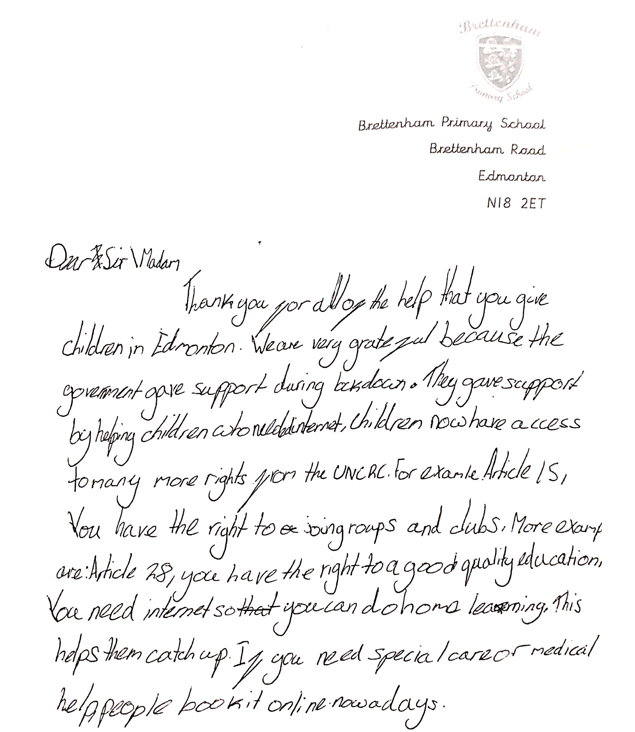 Brettenham
Primary School
Brettenham Primary School
Brettenham Road
Edmonton
N18 2ET
Dear Sir\Madam
Thank you for all of the help that you give
children in Edmonton. We are very grateful because the
goverment gave support during lockdown. They gave support
by helping children who needed internet, Children now have access
to many more rights from the UNCRC. For examle Article 15,
You have the right to join groups and clubs. More examp
are: Article 28, you have the right to a good quality education,
You need internet so that you can do home learning. This
helps them catch up. If you need special care or medical
help people book it online nowadays.